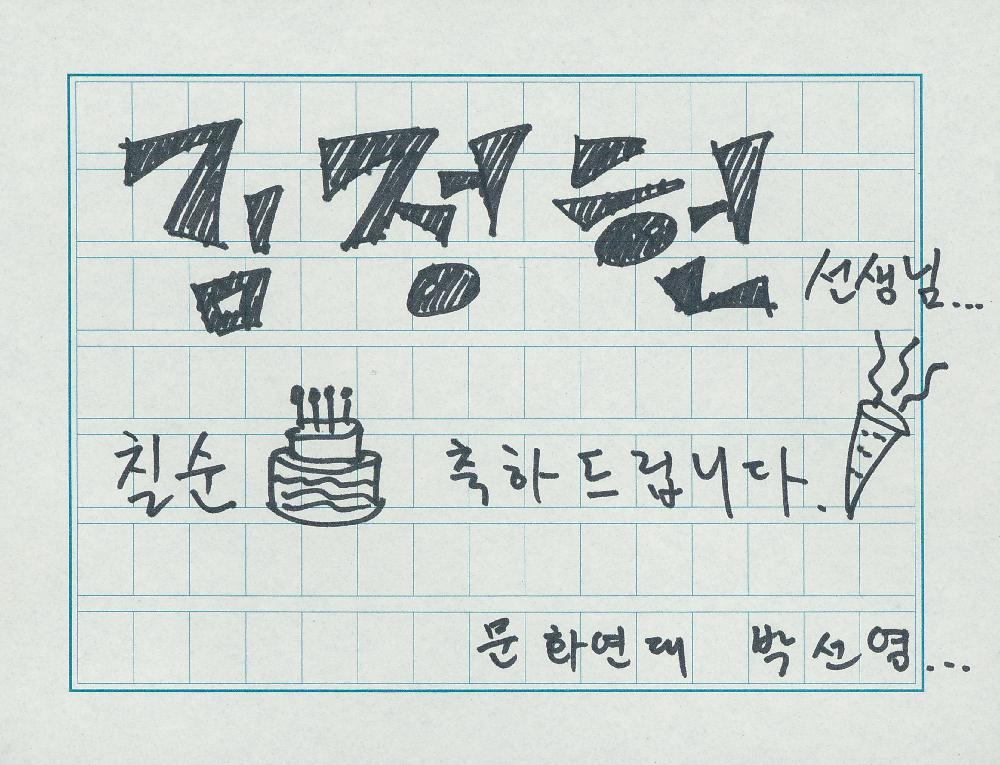 김정헌
선생님...
칠순 축하드립니다.
문화연대 박선영...